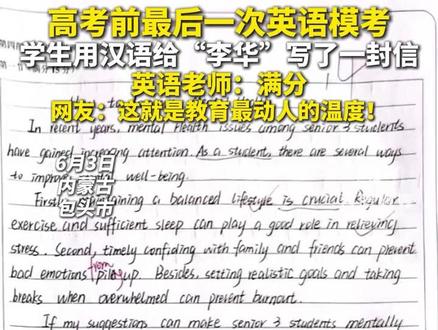 高考前最后一次英语模考
学生用汉语给“李华”写了一封信
英语老师：满分
网友：这就是教育最动人的温度！
6月3日
内蒙古
包头市
In recent years, mental health issues among senior 3 students
have gained increasing attention. As a student, there are several ways
to well-being.
a balanced lifestyle is crucial. Regular
exercise and sufficient sleep can play a good role in relieving
stress. Second, timely confiding with family and friends can prevent
from
bad emotions piling up. Besides, setting realistic goals and taking
breaks when overwhelmed can prevent burnout.
If my suggestions can make senior 3 students mentally